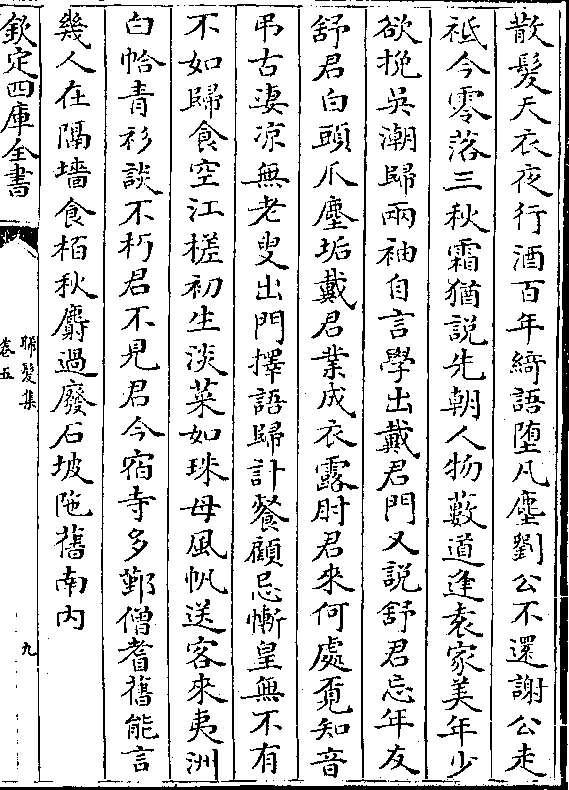 散髮天衣夜行酒百年綺語墮凡塵劉公不還謝公走
祗今零落三秋霜猶說先朝人物藪道逢袁家美年少
欲挽吳潮歸兩袖自言學出戴君門又說舒君忘年友
舒君白頭爪塵垢戴君業成衣露肘君來何處覓知音
弔古淒凉無老叟出門擇語歸訃餐顧忌慚皇無不有
不如歸食空江槎初生淡菜如珠母風帆送客來夷洲
白帢青衫談不朽君不見君今宿寺多鄞僧耆舊能言
幾人在隔墻食栢秋麝過廢石坡陁舊南内
欽定四庫全書
晞髮集
卷五
九